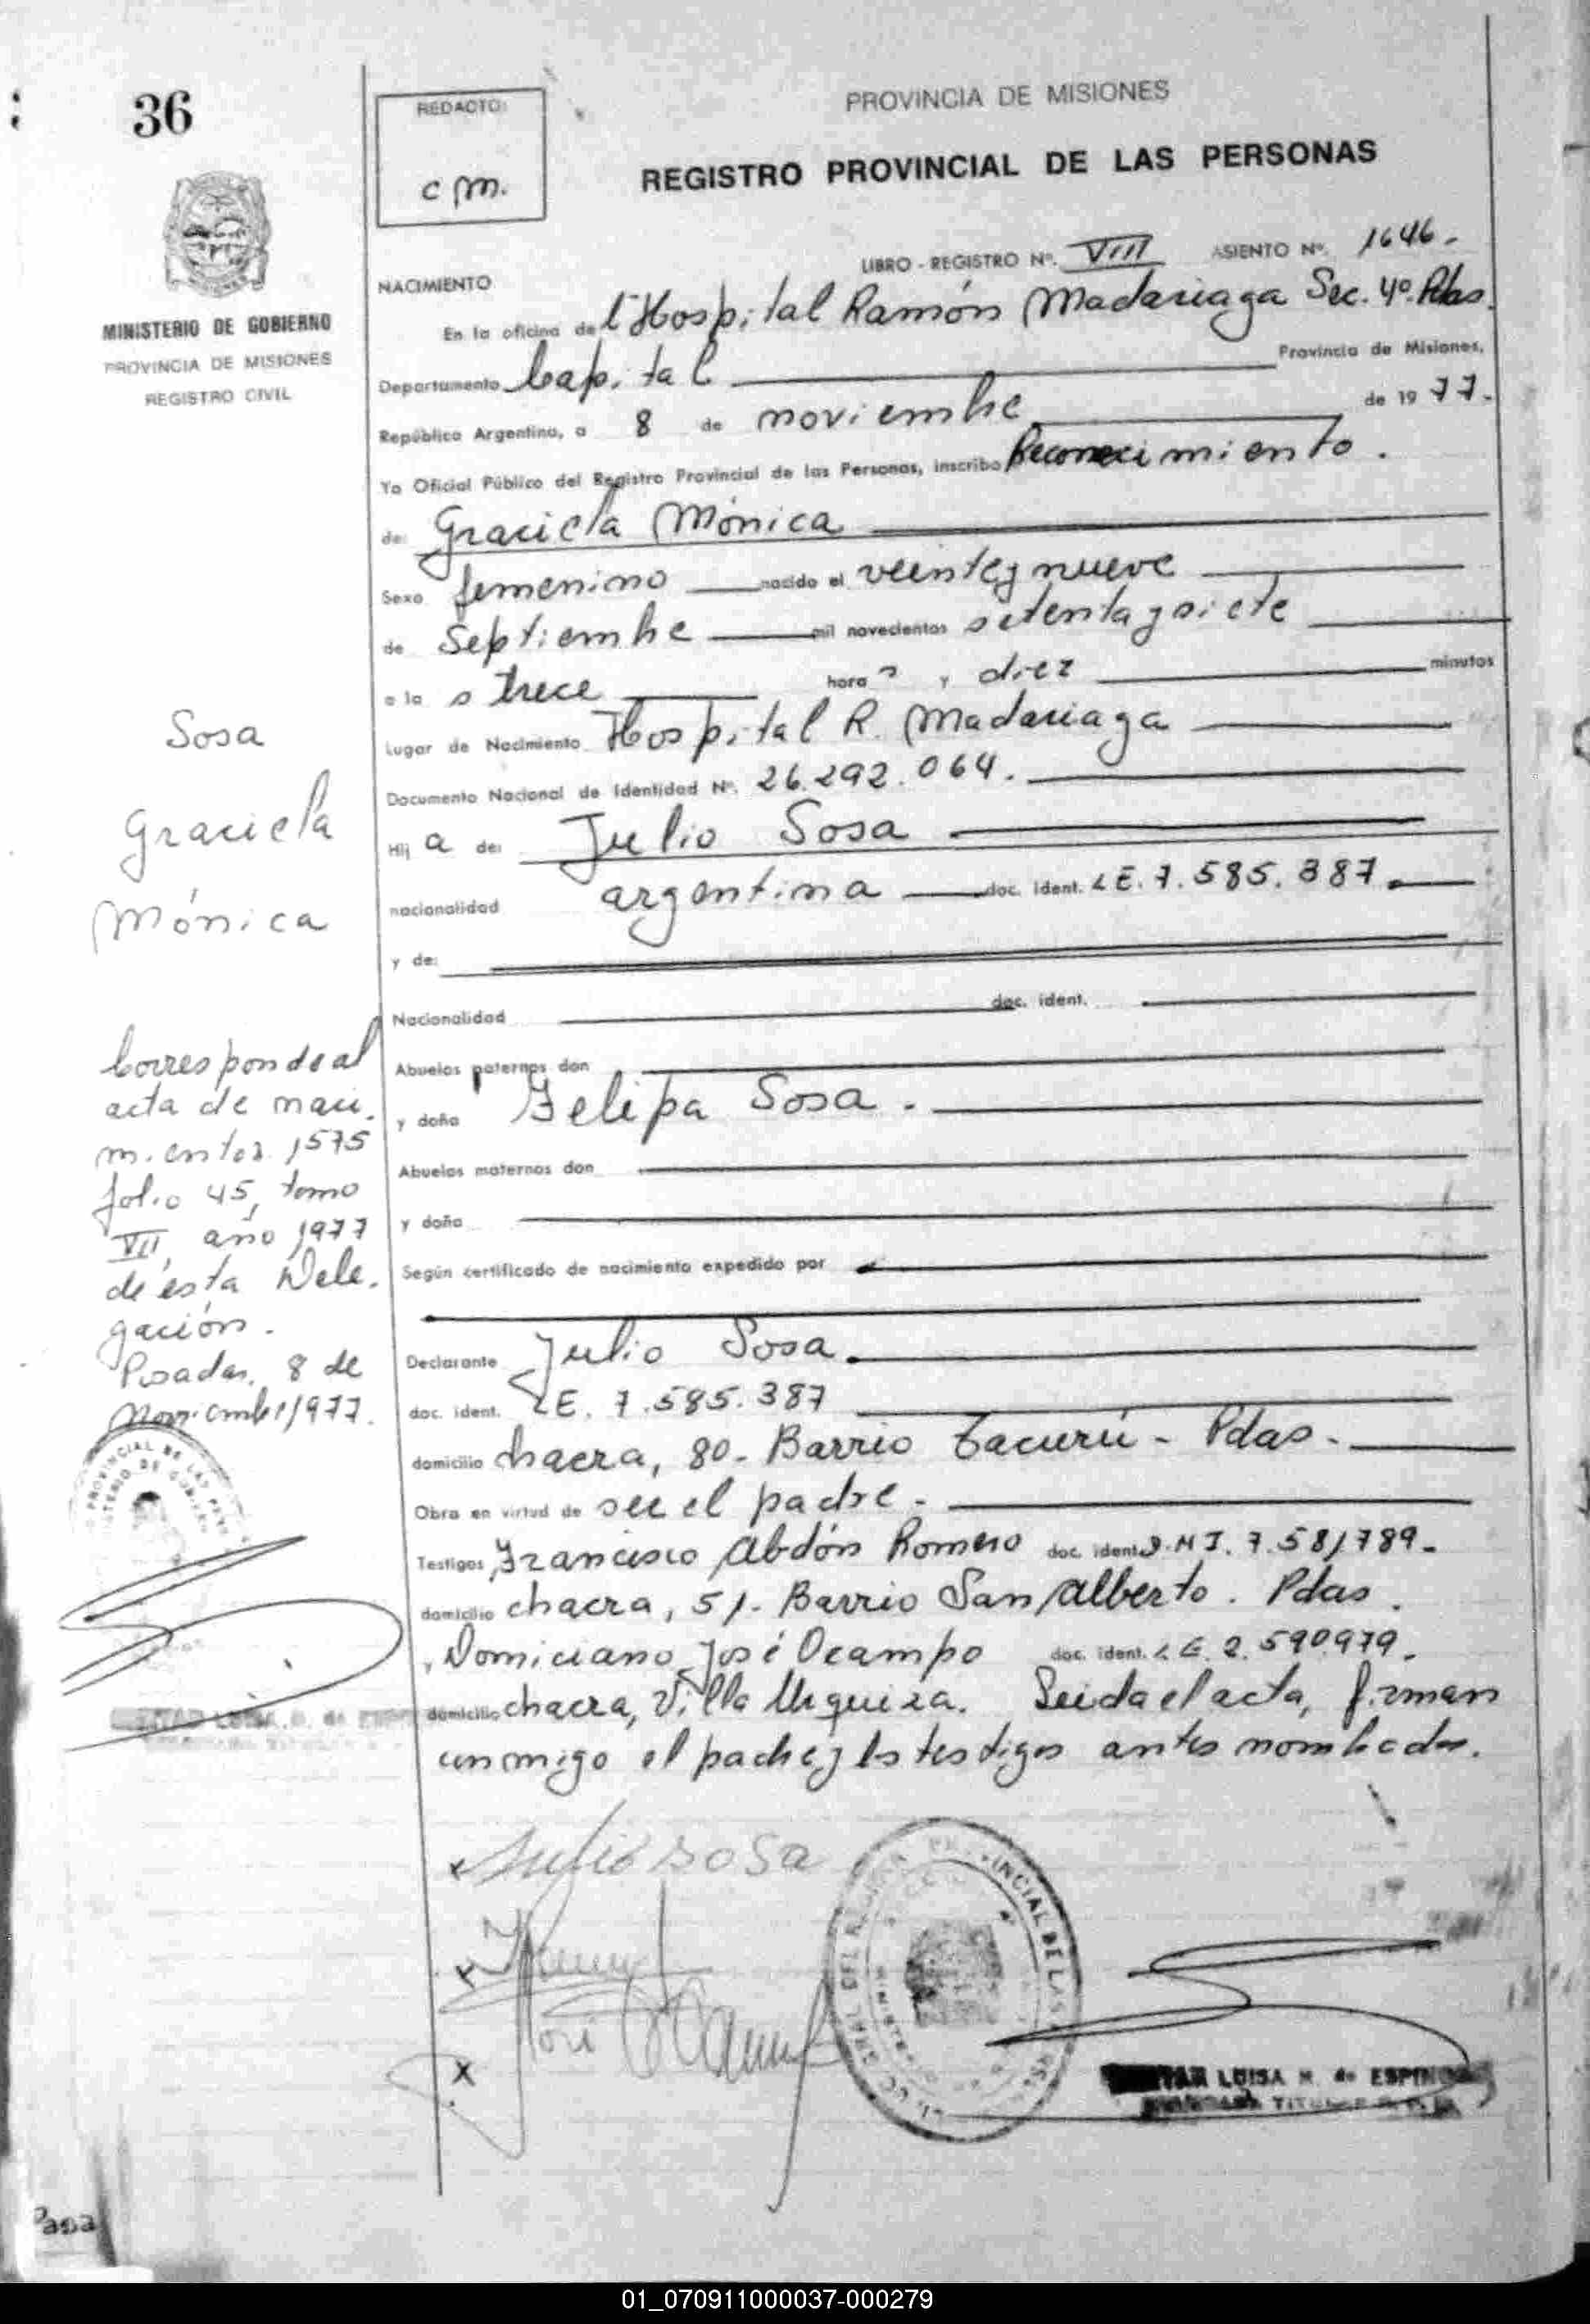 36
REDACTO:
c m.
PROVINCIA DE MISIONES
REGISTRO PROVINCIAL DE LAS PERSONAS
MINISTERIO DE GOBIERNO
PROVINCIA DE MISIONES
REGISTRO CIVIL
LIBRO - REGISTRO Nº. VIII ASIENTO Nº. 1646.
NACIMIENTO
En la oficina de l'Hospital Ramón Madariaga Sec. 4º. Pdas.
Departamento Capital Provincia de Misiones,
República Argentina, a 8 de noviembre de 1977.
Yo Oficial Público del Registro Provincial de las Personas, inscribo Reconocimiento.
de: Graciela Mónica
Sexo femenino nacido el veintey nueve
de Septiembre mil novecientos setentaysiete
a la s trece hora s y diez minutos
Lugar de Nacimiento Hospital R. Madariaga
Documento Nacional de Identidad Nº. 26.292.064.
Hij a de: Julio Sosa
nacionalidad argentina doc. ident. LE. 7.585.387.
y de:
Nacionalidad doc. ident.
Abuelos paternos don
y doña Felipa Sosa.
Abuelos maternos don
y doña
Según certificado de nacimiento expedido por
Declarante Julio Sosa.
doc. ident. LE. 7.585.387
domicilio chacra, 80. Barrio Tacurú - Pdas.
Obra en virtud de ser el padre.
Testigos, Francisco Abdón Romero doc. ident. D.N.I. 7.581789.
domicilio chacra, 51. Barrio San Alberto. Pdas.
, Domiciano José Ocampo doc. ident. LE. 2.590.979.
domicilio chacra, Villa Urquiza. Leida el acta, firman
conmigo el padre y los testigos antes nombrados.
Sosa
Graciela
Mónica
Corresponde al
acta de naci.
mientos 1575
folio 45, tomo
VII, año 1977
de esta Dele.
gación.
Posadas, 8 de
noviembre/977.
x Julio sosa
x
x José Ocampo
LUISA M. de ESPINOSA
TITULAR
Pasa
01_070911000037-000279